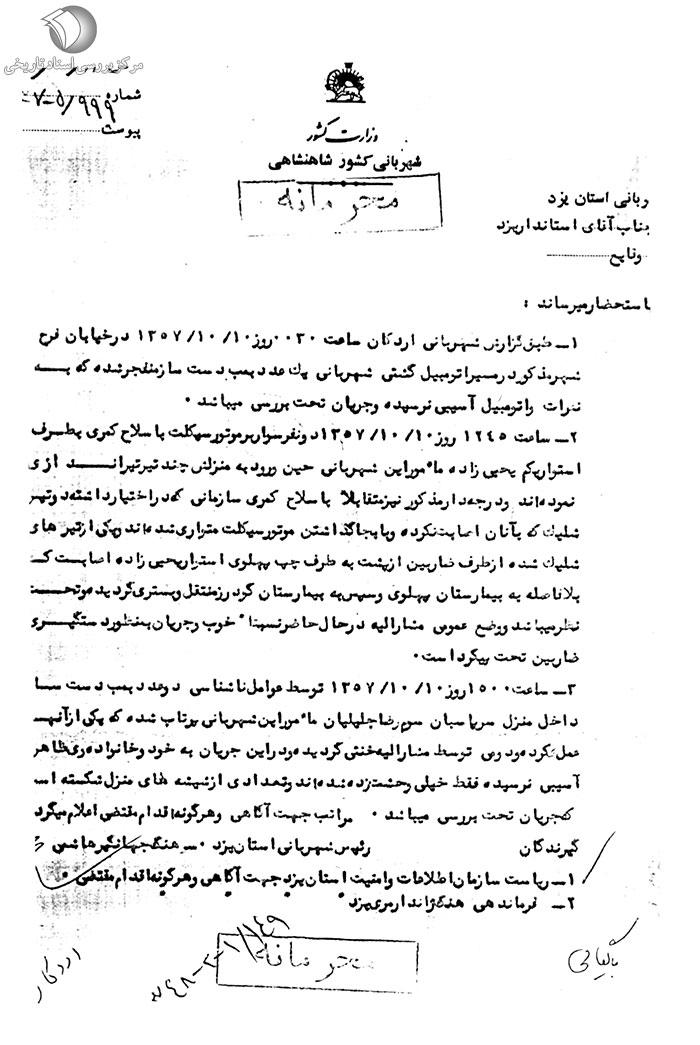 مرکز بررسی اسناد تاریخی
شماره ۷-۵/۹۹۹
پیوست
وزارت کشور
شهربانی کشور شاهنشاهی
محرمانه
ربانی استان یزد
جناب آقای استاندار یزد
وقایع
باستحضار میرساند :
۱- طبق گزارش شهربانی اردکان ساعت ۰۰۳۰ روز ۱۰/ ۱۰/ ۱۳۵۷ در خیابان فرح
شهر مذکور در مسیر اتومبیل گشتی شهربانی یک عدد بمب دست ساز منفجر شده که بـــه
نفرات و اتومبیل آسیبی نرسیده و جریان تحت بررسی میباشد .
۲- ساعت ۱۲۴۵ روز ۱۰/ ۱۰/ ۱۳۵۷ دو نفر سوار بر موتور سیکلت با سلاح کمری بطرف
استوار یکم یحیی زاده مأمور این شهربانی حین ورود به منزلش چند تیر تیرانـــد ازی
نموده اند و درجه دار مذکور نیز متقابلا" با سلاح کمری سازمانی که در اختیار داشته دو تیر
شلیک که بآنان اصابت نکرده و با بجا گذاشتن موتور سیکلت متواری شده اند و یکی از تیر های
شلیک شده از طرف ضاربین از پشت به طرف چپ پهلوی استوار یحیی زاده اصابت کـ
بلافاصله به بیمارستان پهلوی و سپس به بیمارستان گودرز منتقل و بستری گردیده و تحـت
نظر میباشد و وضع عمومی مشارالیه در حال حاضر نسبتا" خوب و جریان بمنظور دستگیـری
ضاربین تحت پیگرد است .
۳- ساعت ۱۵۰۰ روز ۱۰/ ۱۰/ ۱۳۵۷ توسط عوامل ناشناسی دو عدد بمب دست سا
داخل منزل سرپاسبان سوم رضا جلیلیان مأمور این شهربانی پرتاب شده که یکی از آنهـ
عمل کرده و دومی توسط مشارالیه خنثی گردیده و در این جریان به خود و خانواده وی ظاهر
آسیبی نرسیده فقط خیلی وحشت زده شده اند و تعدادی از شیشه های منزل شکسته اسـ
که جریان تحت بررسی میباشد . مراتب جهت آگاهی و هر گونه اقدام مقتضی اعلام میگرد
گیرندگان رئیس شهربانی استان یزد . سرهنگ جهانگیر هاشمی
۱- ریاست سازمان اطلاعات و امنیت استان یزد جهت آگاهی و هر گونه اقدام مقتضی .
۲- فرماندهی هنگ ژاندارمری یزد
محرمانه
بایگانی
اردکان